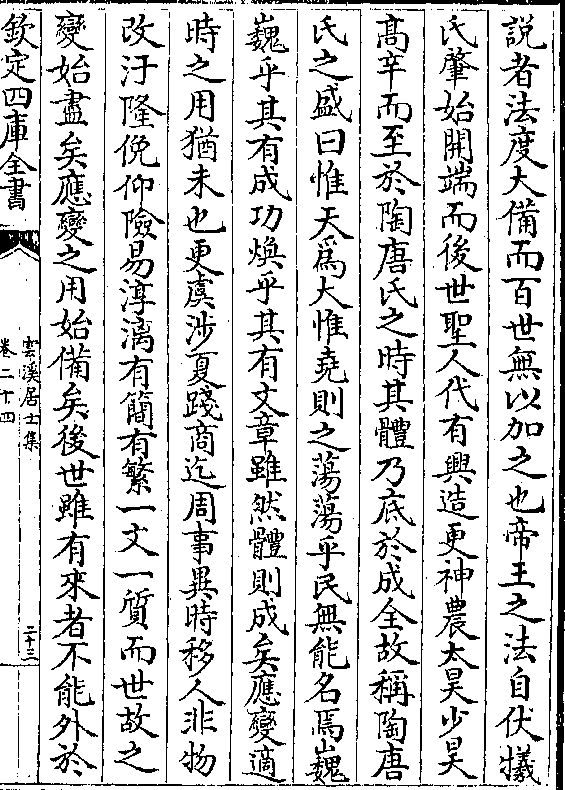 説者法度大備而百世無以加之也帝王之法自伏犧
氏肇始開端而後世聖人代有興造更神農太昊少昊
髙辛而至於陶唐氏之時其體乃底於成全故稱陶唐
氏之盛曰惟天爲大惟堯則之蕩蕩乎民無能名焉巍
巍乎其有成功煥乎其有文章雖然體則成矣應變適
時之用猶未也更虞涉夏踐商迄周事異時移人非物
改汙隆俛仰險易淳漓有簡有繁一文一質而世故之
變始盡矣應變之用始備矣後世雖有來者不能外於
欽定四庫全書
雲溪居士集
卷二十四
二十三